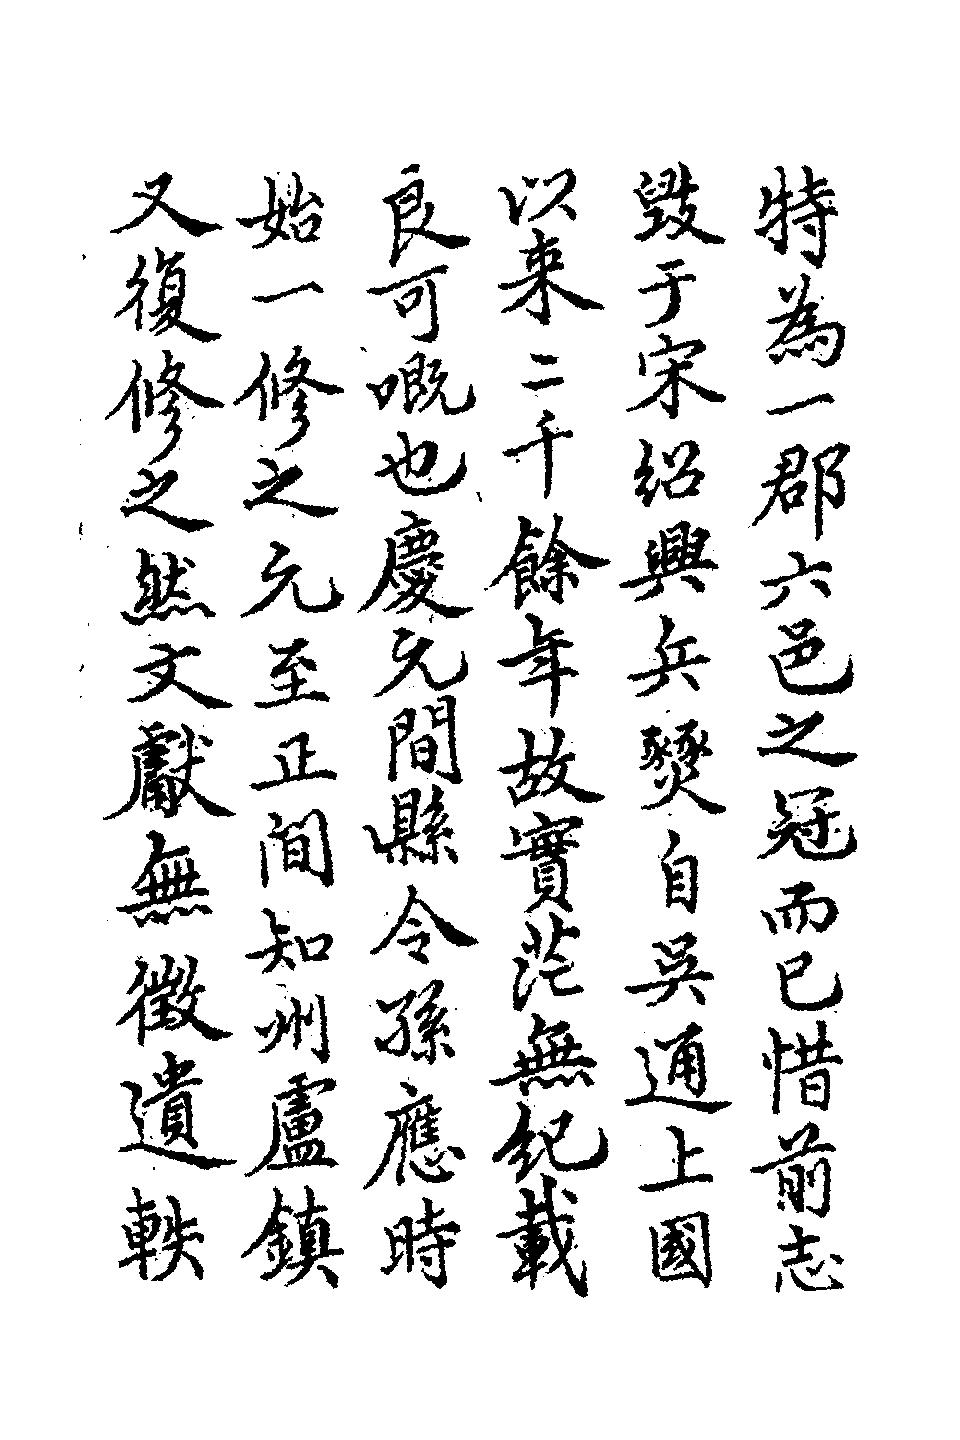 特為一郡六邑之冠而已惜前志
毀于宋紹興兵燹自吳通上國
以來二千餘年故實茫無紀載
良可嘅也慶元間縣令孫應時
始一修之元至正間知州盧鎮
又復修之然文獻無徵遺軼